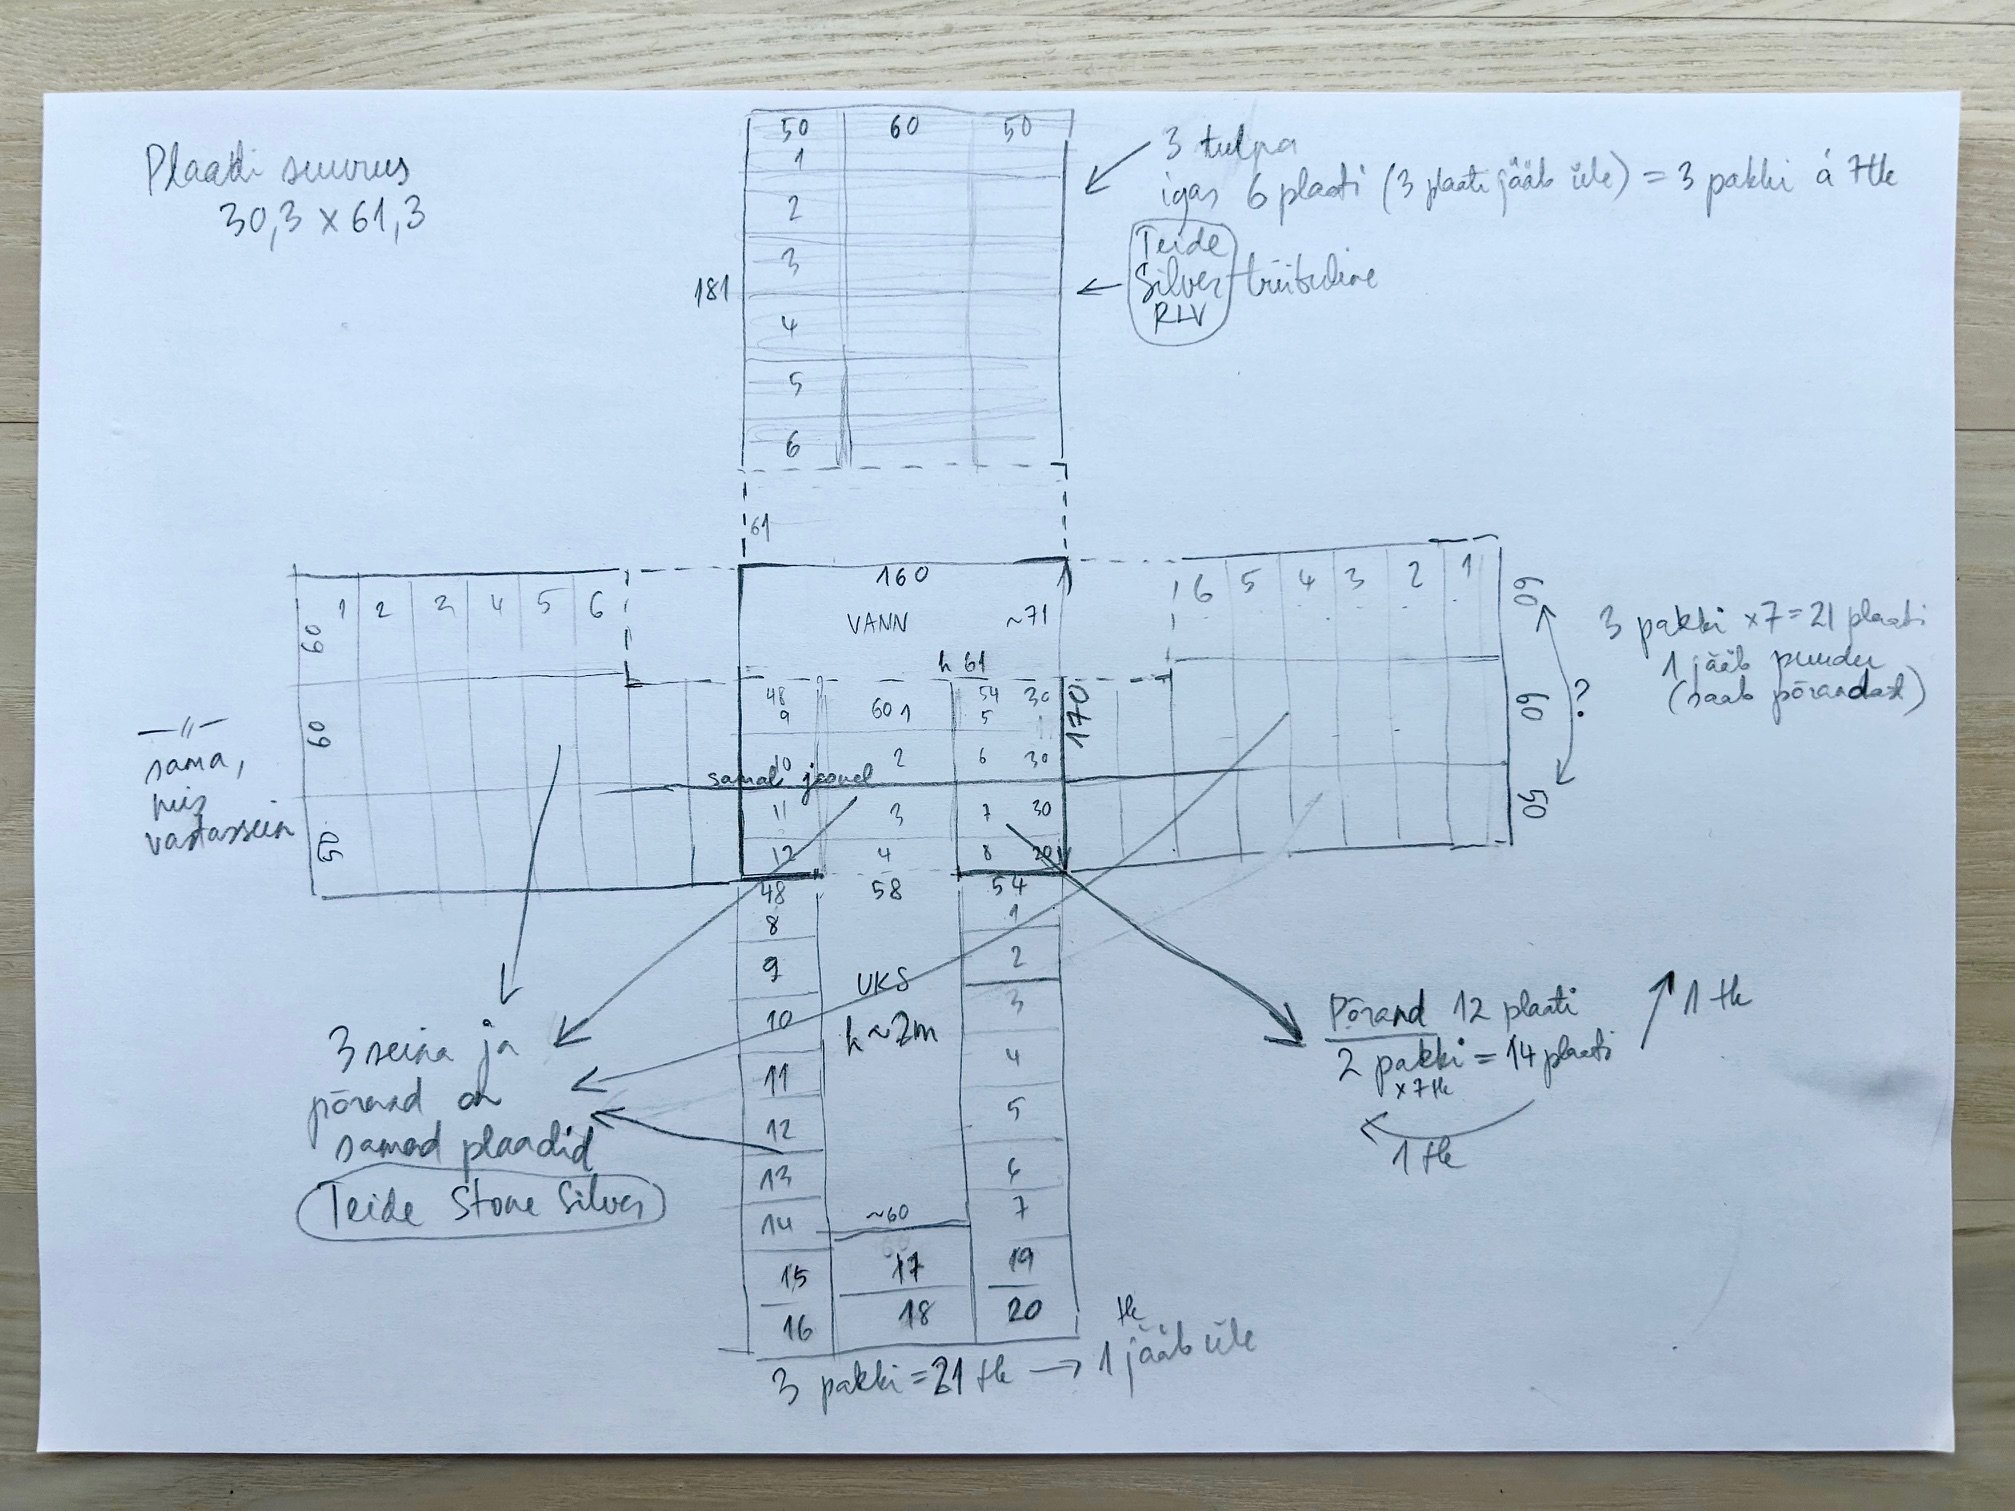 Plaadi suurus
30,3 x 61,3
50 60 50
1
2
3
4
5
6
181
61
3 tulpa
igas 6 plaati (3 plaati jääb üle) = 3 pakki á 7tk
Teide
Silver triibuline
RLV
160
VANN ~71
h 61
170
1 2 3 4 5 6
60
60
50
6 5 4 3 2 1
60
60
50
?
3 pakki x7=21 plaati
1 jääb puudu
(saab põrandast)
—〃—
sama,
mis
vastassein
48 60 1 54 30
9 5
10 2 6 30
samal joonel
11 3 7 30
12 4 8 20
48 58 54
8
9
10
11
12
13
14
15
16
UKS
h~2m
~60
17
18
1
2
3
4
5
6
7
19
20
3 pakki = 21 tk → 1 tk jääb üle
3 seina ja
põrand on
samad plaadid
Teide Stone Silver
Põrand 12 plaati
2 pakki = 14 plaati
x 7tk
1 tk
1 tk